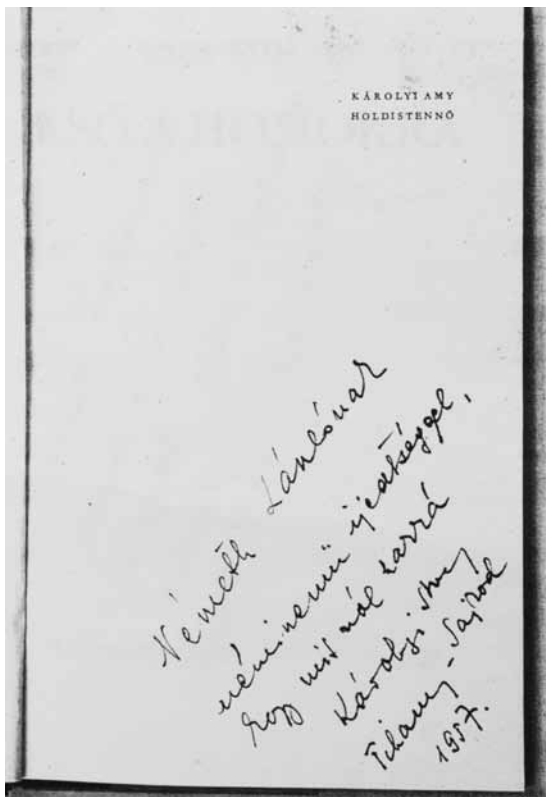 KÁROLYI AMY
HOLDISTENNŐ
Németh Lászlónak
néminemü ijedtséggel,
hogy mit szól hozzá
Károlyi Amy
Tihany-Sajkod
1957.